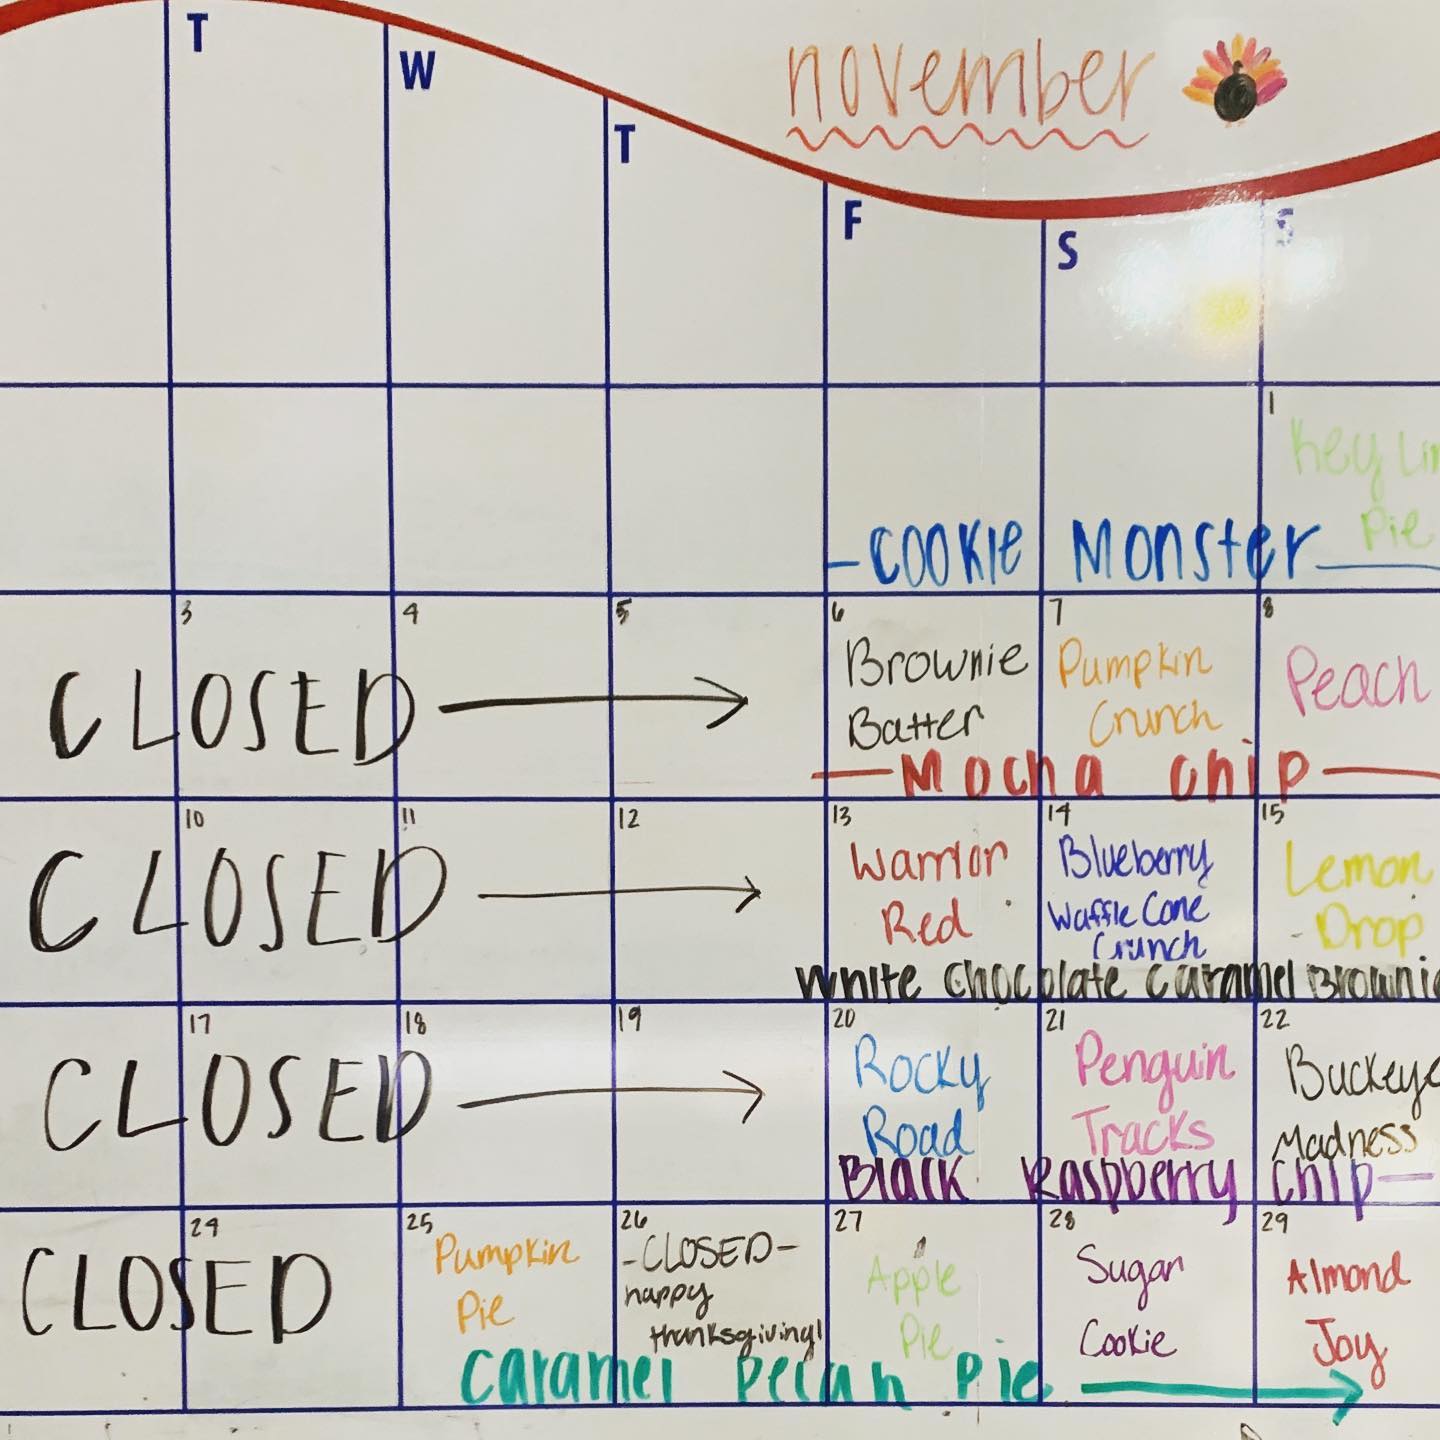 november
T
W
T
F
S
S
1
Key Lim
Pie
-Cookie Monster
3
4
5
6
7
8
CLOSED
Brownie
Batter
Pumpkin
Crunch
Peach
Mocha Chip
10
11
12
13
14
15
CLOSED
Warrior
Red
Blueberry
Waffle Cone
Crunch
Lemon
Drop
White Chocolate Caramel Brownie
17
18
19
20
21
22
CLOSED
Rocky
Road
Penguin
Tracks
Buckeye
Madness
Black Raspberry Chip
24
25
26
27
28
29
CLOSED
Pumpkin
Pie
-CLOSED-
happy
thanksgiving!
Apple
Pie
Sugar
Cookie
Almond
Joy
Caramel Pecan Pie